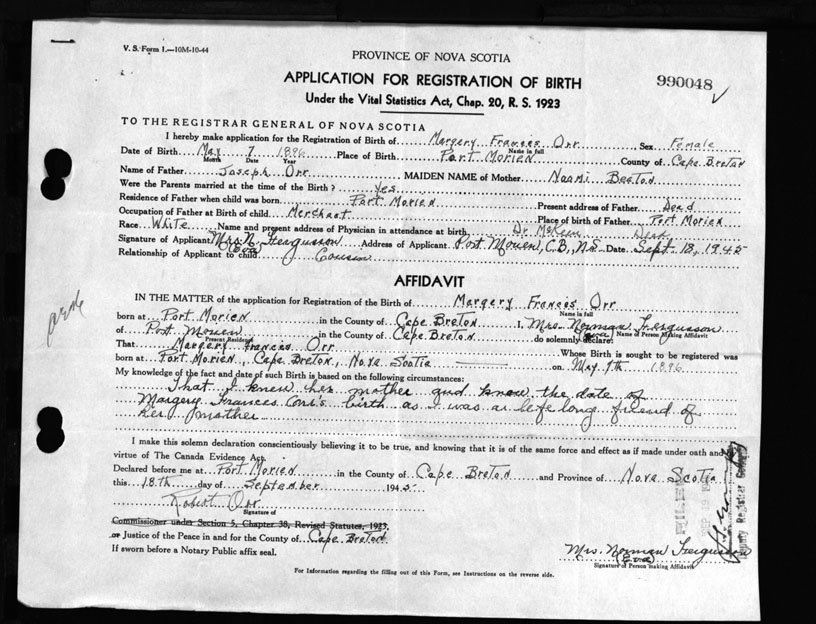 V. S. Form 1.—10M-10-44
PROVINCE OF NOVA SCOTIA
APPLICATION FOR REGISTRATION OF BIRTH
990048
Under the Vital Statistics Act, Chap. 20, R. S. 1923
TO THE REGISTRAR GENERAL OF NOVA SCOTIA
I hereby make application for the Registration of Birth of Margery Frances Orr Sex Female
Name in full
Date of Birth May 7 1896 Place of Birth Port Morien County of Cape Breton
Month Date Year
Name of Father Joseph Orr MAIDEN NAME of Mother Naomi Beeton
Were the Parents married at the time of the Birth? yes
Residence of Father when child was born Port Morien Present address of Father Dead
Occupation of Father at Birth of child Merchant Place of birth of Father Port Morien
Race White Name and present address of Physician in attendance at birth Dr McKeen Dead
Signature of Applicant Mrs. N. Fergusson Address of Applicant Port Morien, C.B., N.S. Date Sept. 18, 1945
(Eva)
Relationship of Applicant to child Cousin
AFFIDAVIT
IN THE MATTER of the application for Registration of the Birth of Margery Frances Orr
Name in full
born at Port Morien in the County of Cape Breton I, Mrs. Norman Fergusson
Eva Name of Person Making Affidavit
of Port Morien in the County of Cape Breton do solemnly declare:
Present Residence
That Margery Frances Orr Whose Birth is sought to be registered was
born at Port Morien, Cape Breton, Nova Scotia on May 7th 1896
My knowledge of the fact and date of such Birth is based on the following circumstances:
That I knew her mother and know the date of
Margery Frances Orr's birth as I was a life long friend of
her mother
I make this solemn declaration conscientiously believing it to be true, and knowing that it is of the same force and effect as if made under oath and by
virtue of The Canada Evidence Act.
Declared before me at Port Morien in the County of Cape Breton and Province of Nova Scotia
this 18th day of September 1945
Robert Orr
Signature of
Commissioner under Section 5, Chapter 38, Revised Statutes, 1923,
or Justice of the Peace in and for the County of Cape Breton
If sworn before a Notary Public affix seal.
Mrs. Norman Fergusson
(Eva)
Signature of Person making Affidavit
For Information regarding the filling out of this Form, see Instructions on the reverse side.
FILED
Deputy Registrar General